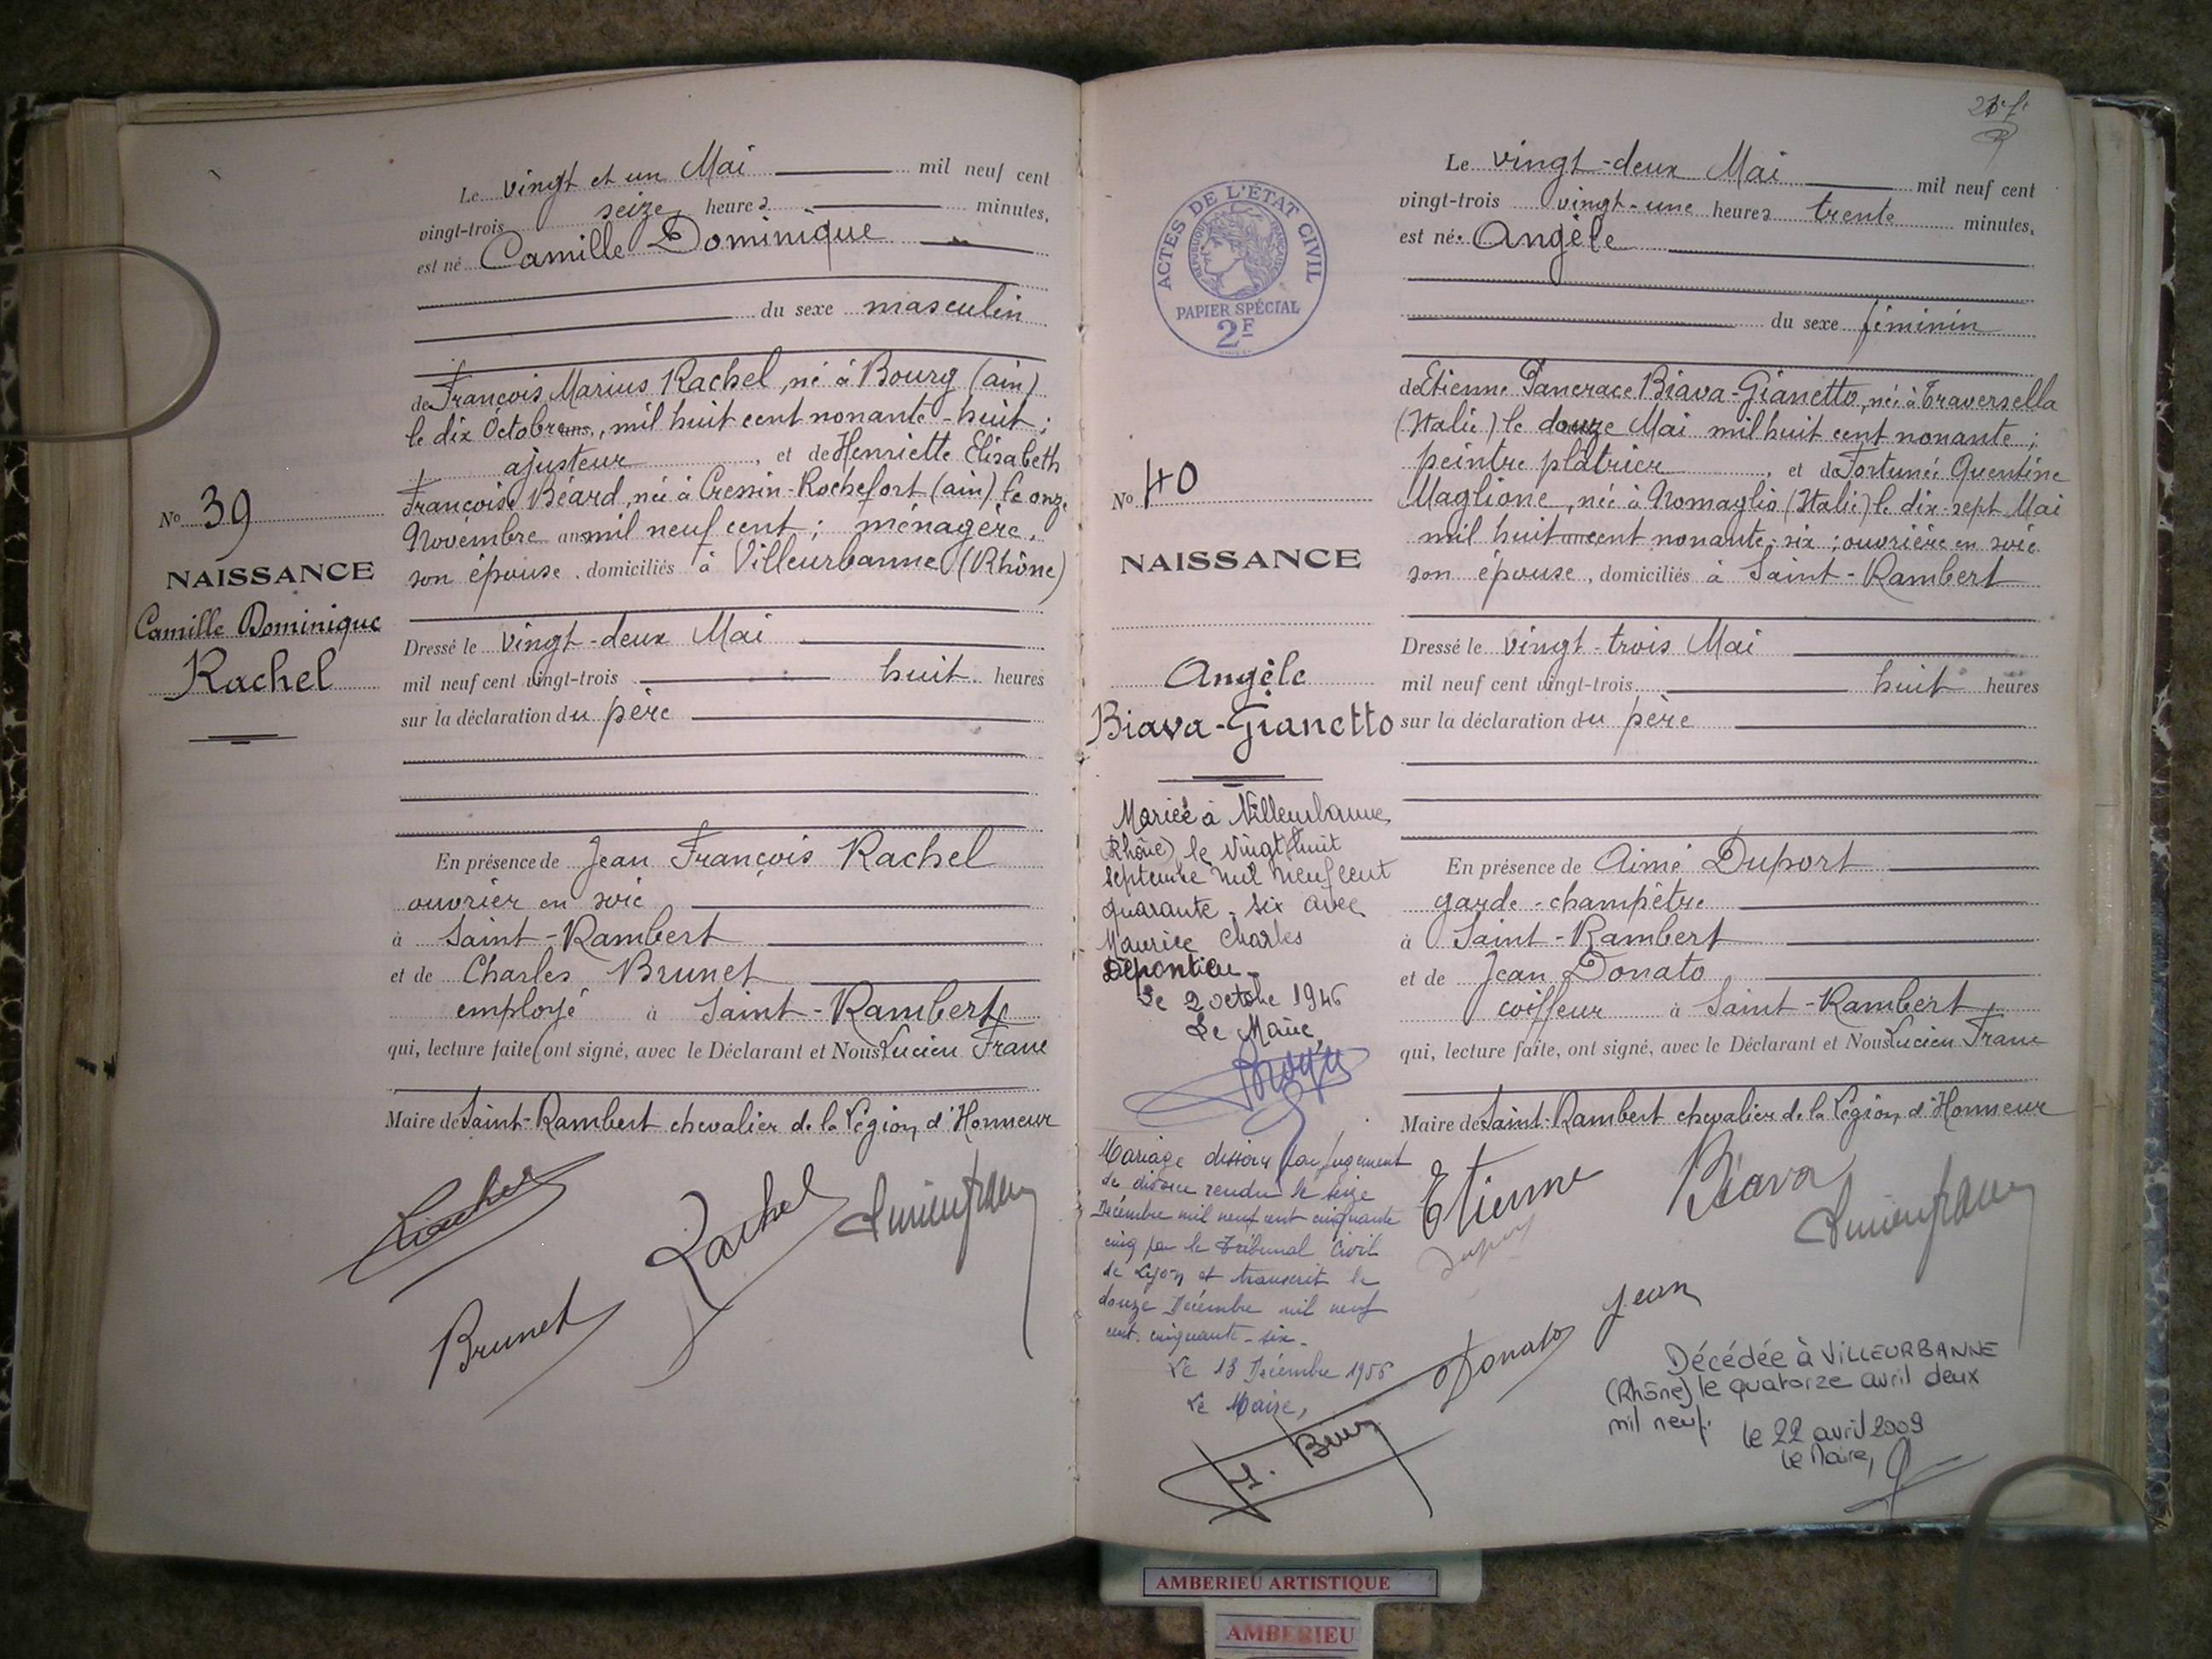 Le vingt et un Mai mil neuf cent
vingt-trois seize heures minutes,
est né Camille Dominique
du sexe masculin
de François Marius Rachel, né à Bourg (ain)
le dix Octobre ans, mil huit cent nonante-huit;
ajusteur, et de Henriette Elisabeth
Françoise Béard, née à Cressin-Rochefort (ain) le onze
Novembre ans mil neuf cent; ménagère,
son épouse, domiciliés à Villeurbanne (Rhône)
No 39
NAISSANCE
Camille Dominique
Rachel
Dressé le vingt-deux Mai
mil neuf cent vingt-trois huit heures
sur la déclaration du père
En présence de Jean François Rachel
ouvrier en soie
à Saint-Rambert
et de Charles Brunet
employé à Saint-Rambert
qui, lecture faite, ont signé, avec le Déclarant et Nous Lucien Franc
Maire de Saint-Rambert chevalier de la Légion d'Honneur
Rachel
Rachel
Lucien franc
Brunet
ACTES DE L'ÉTAT CIVIL
RÉPUBLIQUE FRANÇAISE
PAPIER SPÉCIAL
2F
Le vingt-deux Mai mil neuf cent
vingt-trois vingt-une heures trente minutes,
est née Angèle
du sexe féminin
de Etienne Pancrace Biava-Gianetto, né à Traversella
(Italie) le douze Mai mil huit cent nonante;
peintre plâtrier, et de Fortunée Quentine
Maglione, née à Nomaglio (Italie) le dix-sept Mai
mil huit ans cent nonante-six; ouvrière en soie
son épouse, domiciliés à Saint-Rambert
No 40
NAISSANCE
Angèle
Biava-Gianetto
Dressé le vingt-trois Mai
mil neuf cent vingt-trois huit heures
sur la déclaration du père
En présence de Aimé Duport
garde-champêtre
à Saint-Rambert
et de Jean Donato
coiffeur à Saint-Rambert
qui, lecture faite, ont signé, avec le Déclarant et Nous Lucien Franc
Maire de Saint-Rambert chevalier de la Légion d'Honneur
Mariée à Villeurbanne
(Rhône) le vingt huit
septembre mil neuf cent
quarante-six avec
Maurice Charles
Dépontieu-
Le 2 octobre 1946
Le Maire,
Mariage dissous par jugement
de divorce rendu le seize
Décembre mil neuf cent cinquante
cinq par le Tribunal Civil
de Lyon et transcrit le
douze Décembre mil neuf
cent cinquante-six-
Le 13 Décembre 1956
Le Maire,
Etienne Biava
Lucien franc
Donato Jean
Décédée à VILLEURBANNE
(Rhône) le quatorze avril deux
mil neuf.
le 22 avril 2009
Le Maire,
AMBERIEU ARTISTIQUE
AMBERIEU